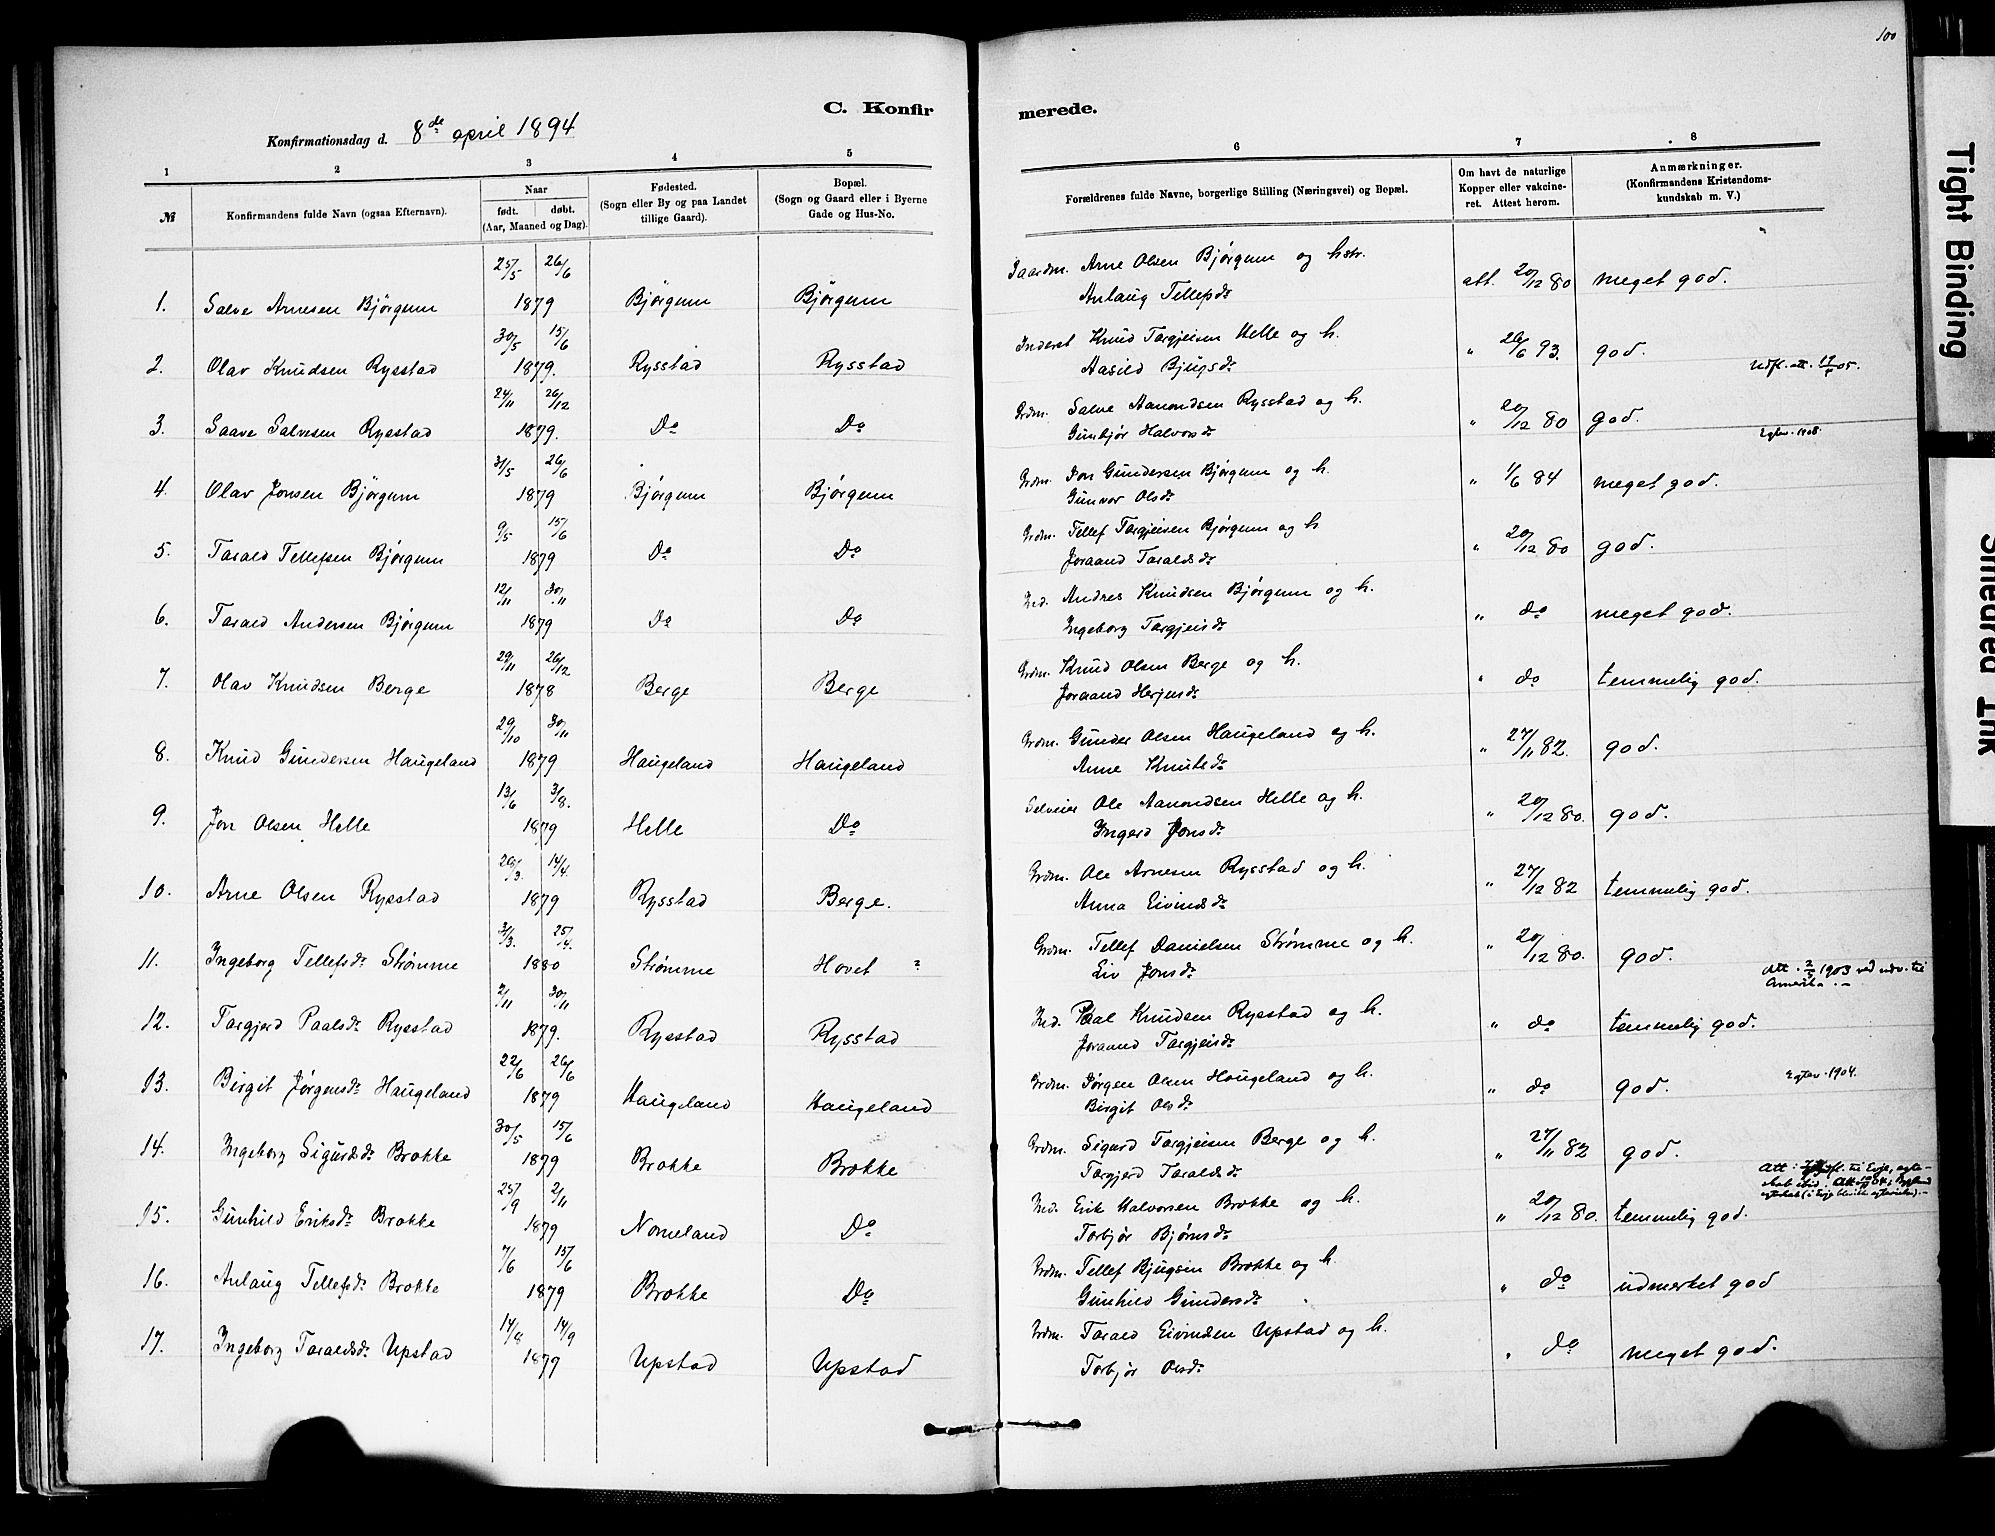 100
C. Konfirmerede.
Konfirmationsdag d. 8de april 1894
1 2 3 4 5 6 7 8
№ Konfirmandens fulde Navn (ogsaa Efternavn). Naar født. døbt. (Aar, Maaned og Dag). Fødested. (Sogn eller By og paa Landet tillige Gaard). Bopæl. (Sogn og Gaard eller i Byerne Gade og Hus-No. Forældrenes fulde Navne, borgerlige Stilling (Næringsvei) og Bopæl. Om havt de naturlige Kopper eller vakcineret. Attest herom. Anmærkninger. (Konfirmandens Kristendomskundskab m. V.)
25/5 26/6 Gaardm. Arne Olsen Bjørgum og hstr.
1. Salve Arnesen Bjørgum 1879 Bjørgum Bjørgum Anlaug Tellefsdr att. 20/12 80 meget god.
30/5 15/6 Inderst Knud Targjeisen Helle og h.
2. Olav Knudsen Rysstad 1879. Rysstad Rysstad Aasild Bjugsdr " 26/6 93. god. Udfl. att. 05.
24/11 26/12 Grdm. Salve Aamondsen Rysstad og h.
3. Saave Salvesen Rysstad 1879. Do Do Gunbjør Halvorsdr " 20/12 80 god. Egtev. 1908.
31/5 26/6 Grdm. Jon Gundersen Bjørgum og h.
4. Olav Jonsen Bjørgum 1879 Bjørgum Bjørgum Gunvor Olsdr " 1/6 84 meget god.
9/5 15/6 Grdm. Tellef Targjeisen Bjørgum og h
5. Tarald Tellefsen Bjørgum 1879 Do Do Joraand Taraldsdr " 20/12 80 god.
12/11 30/11 Ind. Andres Knudsen Bjørgum og h.
6. Tarald Andersen Bjørgum 1879 Do Do Ingeborg Targjeisdr " do meget god.
29/11 26/12 Grdm. Knud Olsen Berge og h.
7. Olav Knudsen Berge 1878 Berge Berge Joraand Herjusdr " do temmelig god.
29/10 30/11 Grdm. Gunder Olsen Haugeland og h.
8. Knud Gundersen Haugeland 1879 Haugeland Haugeland Anne Knutsdr " 27/11 82. god.
13/6 3/8. Selveier Ole Aamondsen Helle og h.
9. Jon Olsen Helle 1879 Helle Do Ingerd Jonsdr " 20/12 80. god.
20/3. 14/4. Grdm. Ole Arnesen Rysstad og h.
10. Arne Olsen Rysstad 1879 Rysstad Berge. Anna Eivindsdr " 27/12 82 temmelig god.
3/3. 25/4. Grdm. Tellef Danielsen Strømme og h.
11. Ingeborg Tellefsdr Strømme 1880 Strømme Hovet Liv Jonsdr " 20/12 80. god. Att. 2/3 1903 ved udv. til Amerika.
2/11 30/11 Ind. Paal Knudsen Rysstad og h.
12. Targjerd Paalsdr Rysstad 1879. Rysstad Rysstad Joraand Targjeisdr " do temmelig god.
22/6 26/6 Grdm. Jørgen Olsen Haugeland og h.
13. Birgit Jørgensdr Haugeland 1879 Haugeland Haugeland Birgit Olsdr " do god. Egtev. 1904.
30/5 15/6 Grdm. Sigurd Targjeisen Berge og h.
14. Ingeborg Sigurdsdr Brokke 1879 Brokke Brokke Targjerd Taraldsdr " 27/11 82 god.
25/9 2/11 Ind. Erik Halvorsen Brokke og h.
15. Gunhild Eriksdr Brokke 1879 Nomeland Do Torbjør Bjørnsdr " 20/12 80. temmelig god.
7/6 15/6 Grdm. Tellef Bjugsen Brokke og h.
16. Anlaug Tellefsdr Brokke 1879 Brokke Do Gunhild Gundersdr " do udmerket god
14/8 14/9 Grdm. Tarald Eivindsen Upstad og h.
17. Ingeborg Taraldsdr Upstad 1879 Upstad Upstad Torbjør Olsdr " do meget god.
Tight Binding
Smeared Ink